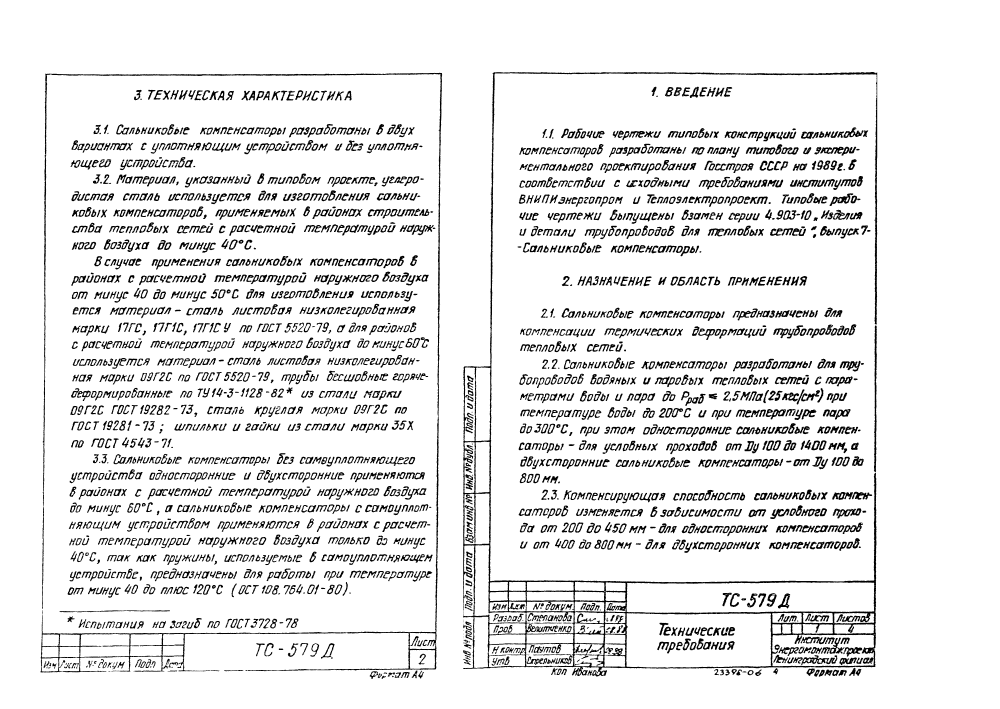 3. ТЕХНИЧЕСКАЯ ХАРАКТЕРИСТИКА
3.1. Сальниковые компенсаторы разработаны в двух
вариантах с уплотняющим устройством и без уплотня-
ющего устройства.
3.2. Материал, указанный в типовом проекте, углеро-
дистая сталь используется для изготовления сальни-
ковых компенсаторов, применяемых в районах строитель-
ства тепловых сетей с расчетной температурой наруж-
ного воздуха до минус 40°С.
В случае применения сальниковых компенсаторов в
районах с расчетной температурой наружного воздуха
от минус 40 до минус 50°С для изготовления использу-
ется материал - сталь листовая низколегированная
марки 17ГС, 17Г1С, 17Г1С У по ГОСТ 5520-79, а для районов
с расчетной температурой наружного воздуха до минус 60°С
используется материал - сталь листовая низколегирован-
ная марки 09Г2С по ГОСТ 5520-79, трубы бесшовные горяче-
деформированные по ТУ14-3-1128-82* из стали марки
09Г2С ГОСТ 19282-73, сталь круглая марки 09Г2С по
ГОСТ 19281-73; шпильки и гайки из стали марки 35Х
по ГОСТ 4543-71.
3.3. Сальниковые компенсаторы без самоуплотняющего
устройства односторонние и двухсторонние применяются
в районах с расчетной температурой наружного воздуха
до минус 60°С, а сальниковые компенсаторы с самоуплот-
няющим устройством применяются в районах с расчет-
ной температурой наружного воздуха только до минус
40°С, так как пружины, используемые в самоуплотняющем
устройстве, предназначены для работы при температуре
от минус 40 до плюс 120°С (ОСТ 108.764.01-80).
* Испытания на загиб по ГОСТ 3728-78
Изм Лист № докум Подп Дата
ТС-579Д
Лист
2
Формат А4
1. ВВЕДЕНИЕ
1.1. Рабочие чертежи типовых конструкций сальниковых
компенсаторов разработаны по плану типового и экспери-
ментального проектирования Госстроя СССР на 1989г. в
соответствии с исходными требованиями институтов
ВНИПИэнергопром и Теплоэлектропроект. Типовые рабо-
чие чертежи выпущены взамен серии 4.903-10 „Изделия
и детали трубопроводов для тепловых сетей", выпуск 7-
-Сальниковые компенсаторы.
2. НАЗНАЧЕНИЕ И ОБЛАСТЬ ПРИМЕНЕНИЯ
2.1. Сальниковые компенсаторы предназначены для
компенсации термических деформаций трубопроводов
тепловых сетей.
2.2. Сальниковые компенсаторы разработаны для тру-
бопроводов водяных и паровых тепловых сетей с пара-
метрами воды и пара до Рраб ≤ 2,5МПа (25кгс/см²) при
температуре воды до 200°С и при температуре пара
до 300°С, при этом односторонние сальниковые компен-
саторы - для условных проходов от Ду 100 до 1400 мм, а
двухсторонние сальниковые компенсаторы - от Ду 100 до
800 мм.
2.3. Компенсирующая способность сальниковых компен-
саторов изменяется в зависимости от условного прохо-
да от 200 до 450 мм - для односторонних компенсаторов
и от 400 до 800 мм - для двухсторонних компенсаторов.
Инв № подл Подп. и дата Взам инв № Инв № дубл. Подп. и дата
Изм Лист № докум Подп. Дата
Разраб. Степанова
Пров
Н контр. Паутов
Утв Стрельников
ТС-579Д
Технические
требования
Лит. Лист Листов
1 4
Институт
Энергомонтажпроект
Ленинградский филиал
Коп Иванова
23398-06 4
Формат А4